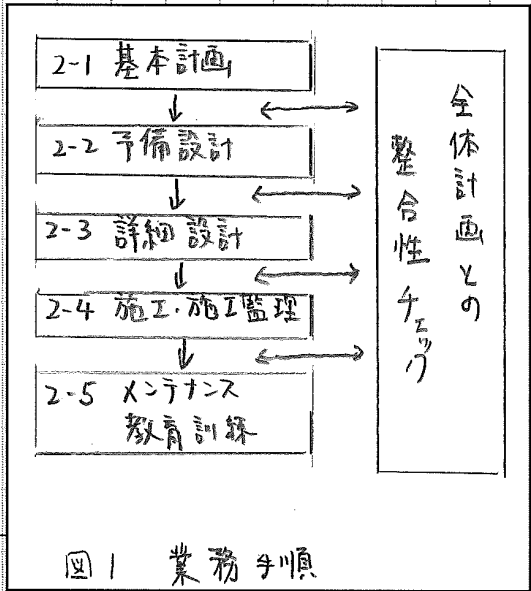 2-1 基本計画
2-2 予備設計
2-3 詳細設計
2-4 施工・施工監理
2-5 メンテナンス
教育訓練
全体計画との
整合性チェック
図1 業務手順